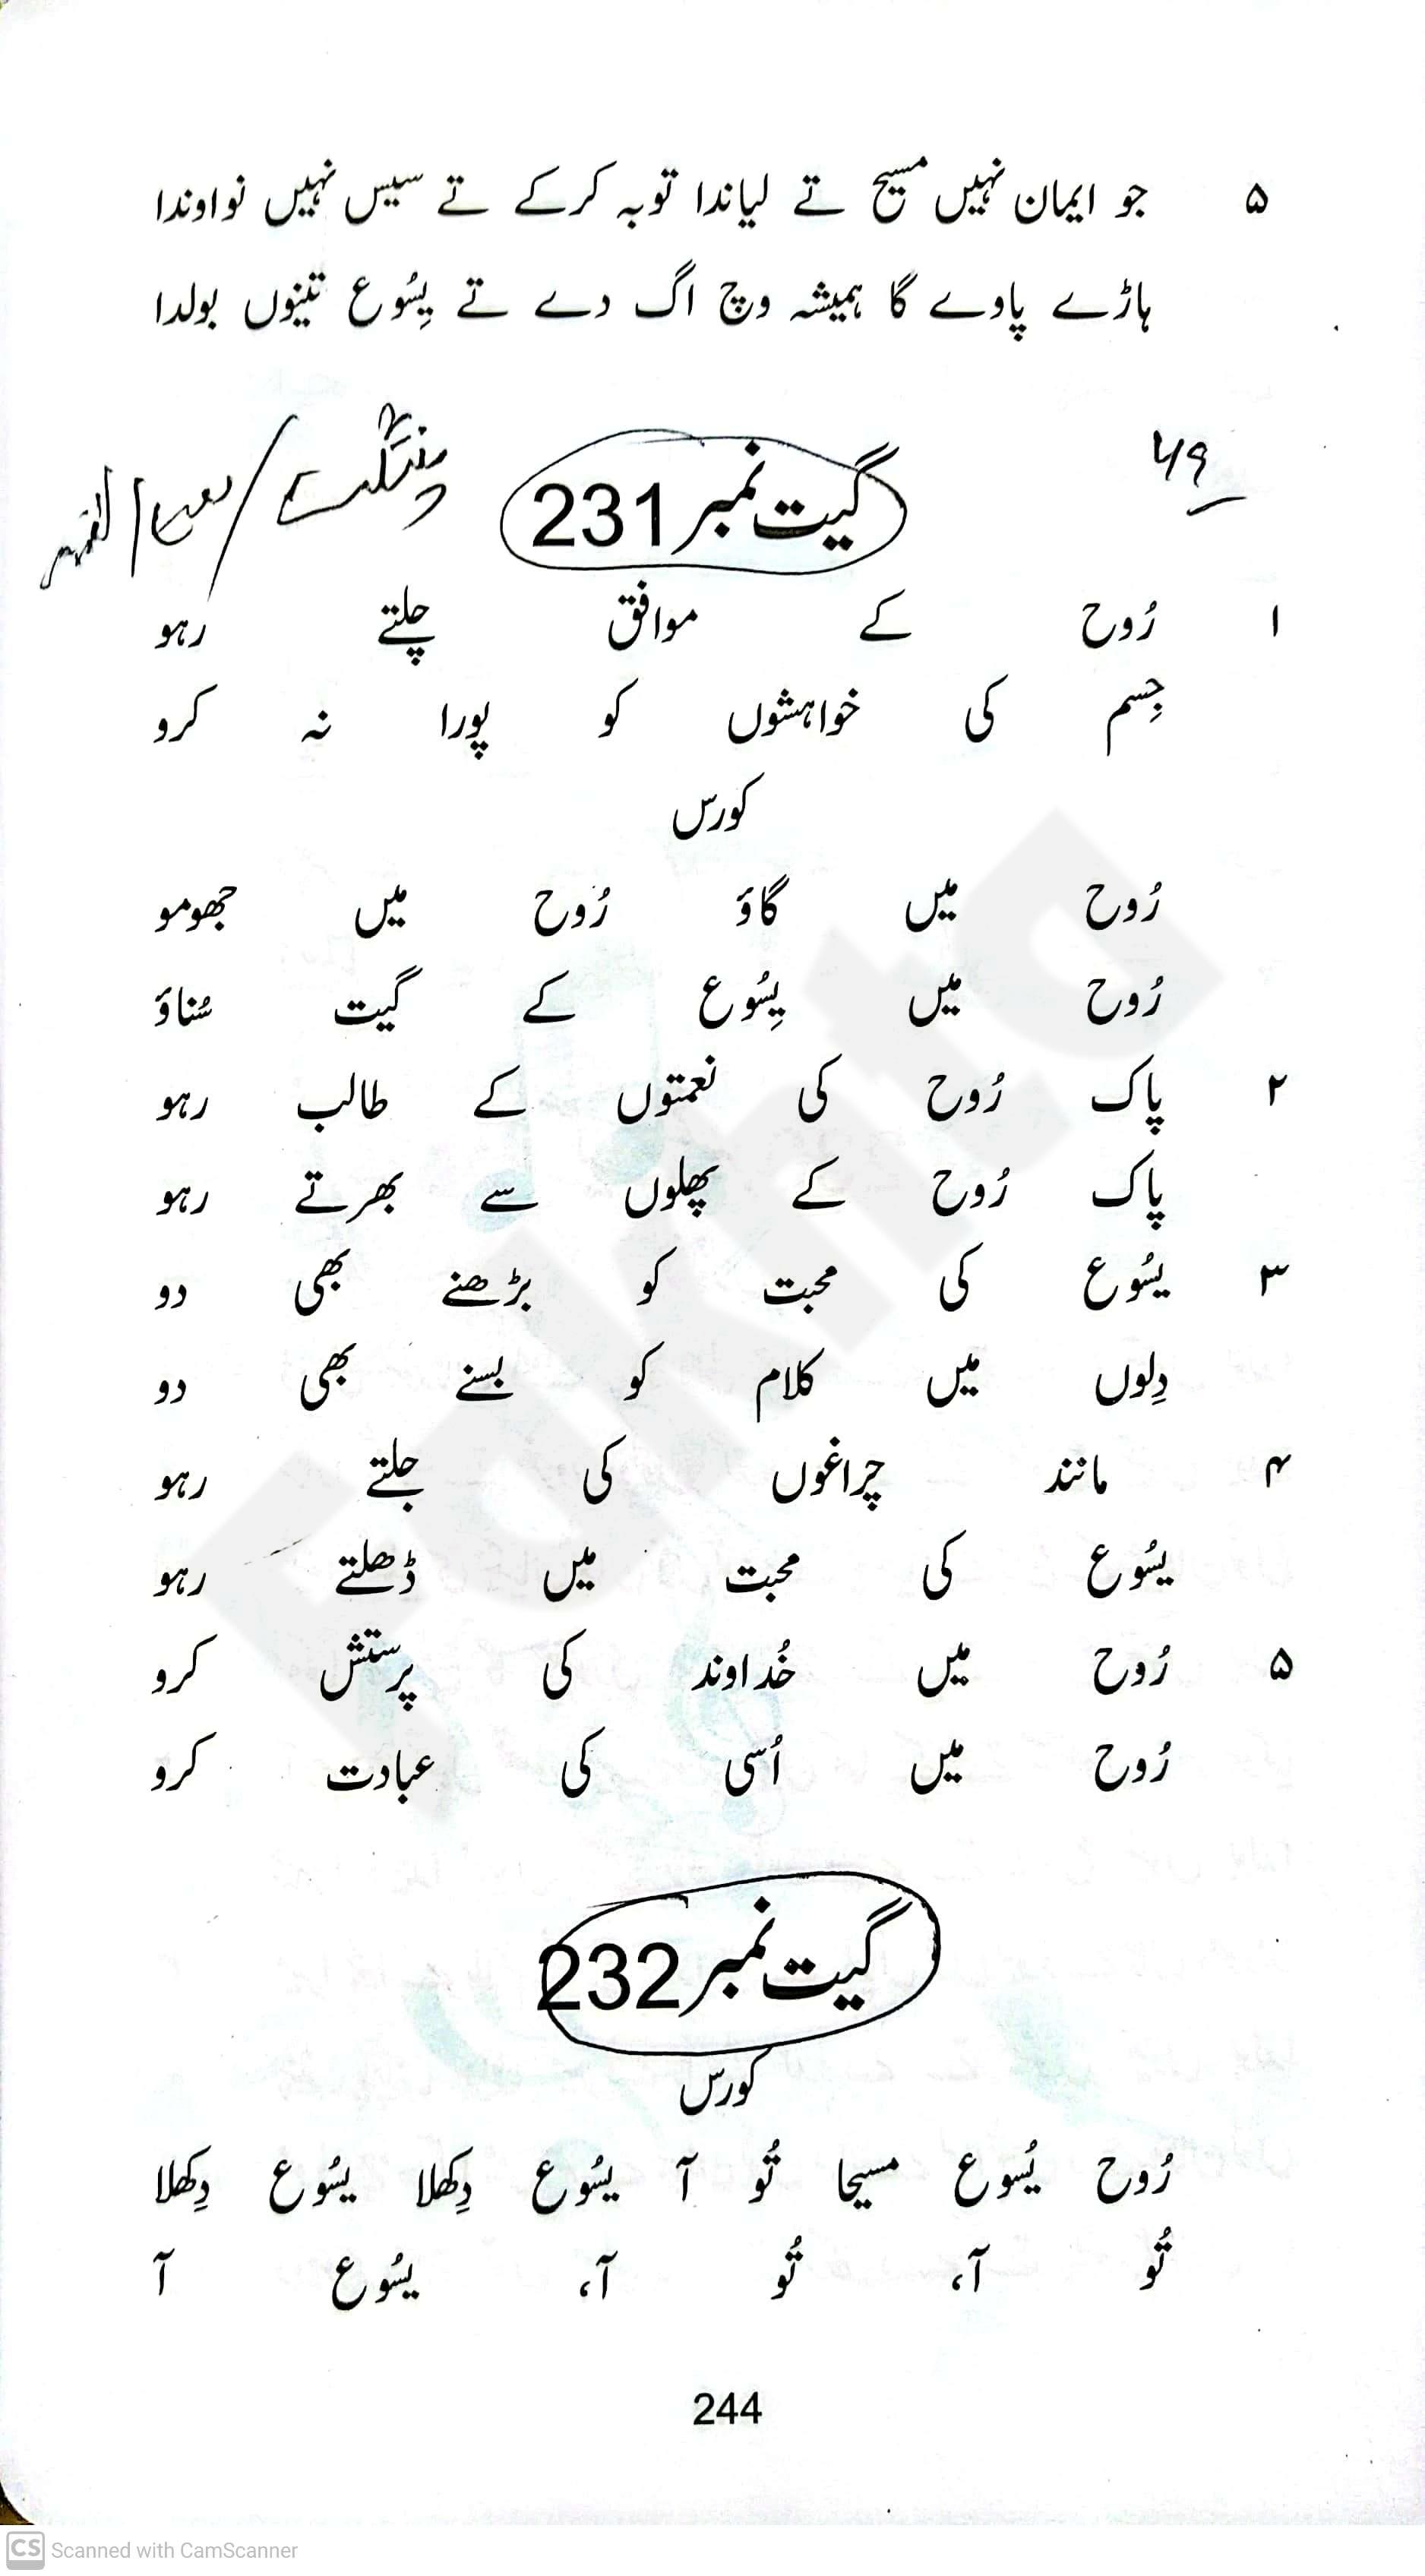 ۵ جو ایمان نہیں مسیح تے لیاندا توبہ کرکے تے سیس نہیں نواوندا
ہاڑے پاوے گا ہمیشہ وچ اگ دے تے یِسُوع تینوں بولدا
۴۹
گیت نمبر 231
۱ رُوح کے موافق چلتے رہو
جِسم کی خواہشوں کو پورا نہ کرو
کورس
رُوح میں گاؤ رُوح میں جھومو
رُوح میں یِسُوع کے گیت سُناؤ
۲ پاک رُوح کی نعمتوں کے طالب رہو
پاک رُوح کے پھلوں سے بھرتے رہو
۳ یسُوع کی محبت کو بڑھنے بھی دو
دِلوں میں کلام کو بسنے بھی دو
۴ مانند چراغوں کی جلتے رہو
یسُوع کی محبت میں ڈھلتے رہو
۵ رُوح میں خُداوند کی پرستش کرو
رُوح میں اُسی کی عبادت کرو
گیت نمبر 232
کورس
رُوح یُسوع مسیحا تُو آ یسُوع دِکھلا یسُوع دِکھلا
تُو آ، تُو آ، یسُوع آ
244
Fakhta
CS Scanned with CamScanner